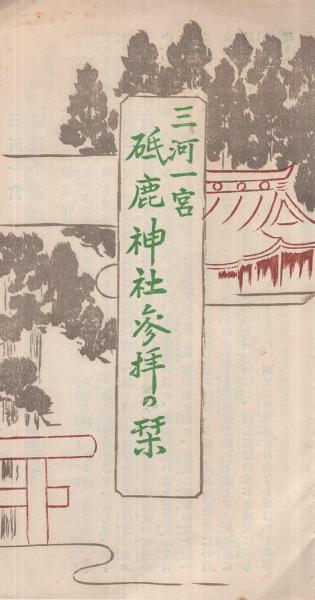 三河一宮
砥鹿神社参拝の栞